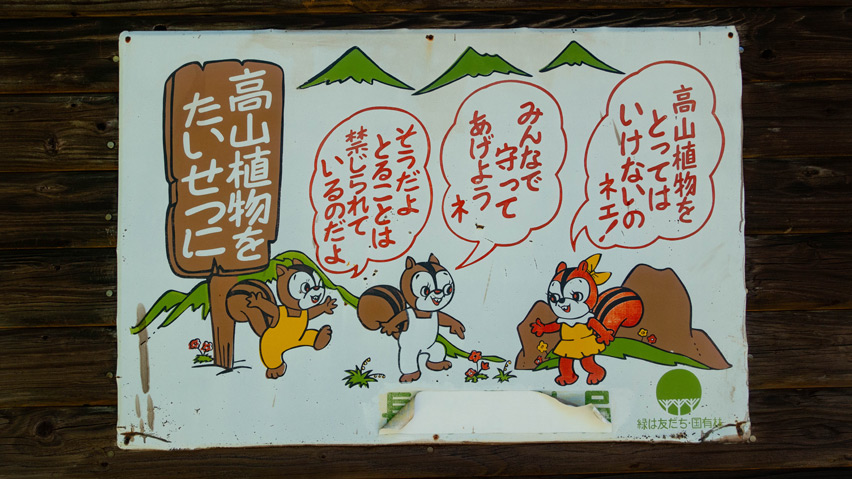 高山植物を
たいせつに
高山植物を
とっては
いけないの
ネエ!
みんなで
守って
あげよう
ネ
そうだよ
とることは
禁じられて
いるのだよ
緑は友だち・国有林